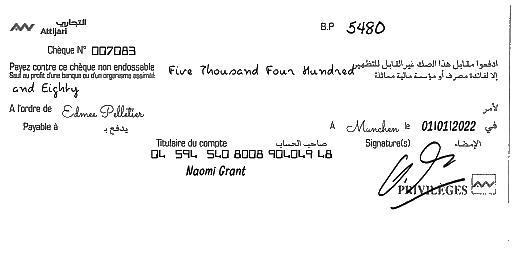 التجاري
Attijari
B.P 5480
Chèque N° 007083
Payez contre ce chèque non endossable
Sauf au profit d'une banque ou d'un organisme assimilé
Five Thousand Four Hundred
ادفعوا مقابل هذا الصك غير القابل للتظهير
إلا لفائدة مصرف أو مؤسسة مالية مماثلة
and Eighty
A l'ordre de Edmee Pelletier
لأمر
Payable à يدفع بـ
A Munchen le 01/01/2022 في
Titulaire du compte صاحب الحساب
Signature(s) الإمضاء
04 594 540 8008 904049 48
Naomi Grant
PRIVILÈGES